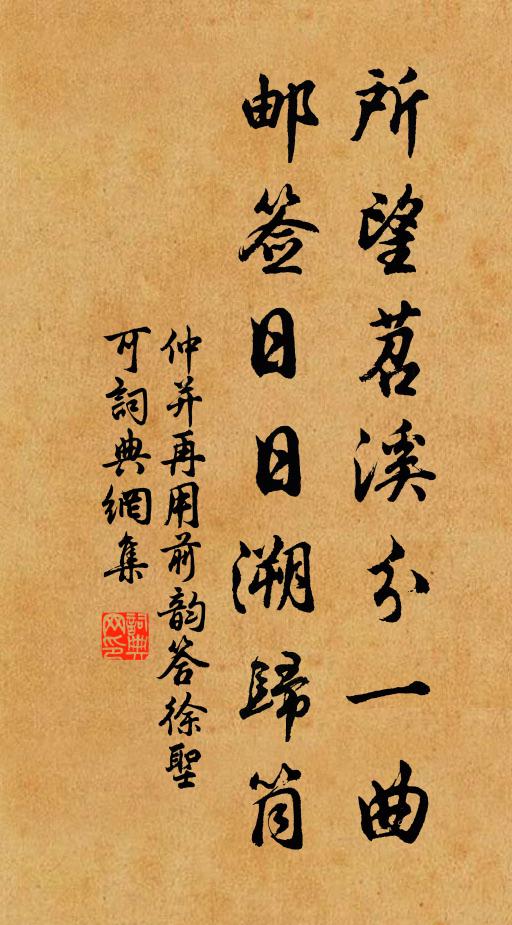 所望苕溪分一曲
邮签日日溯歸筒
仲并再用前韵答徐聖
可詞典網集
詞典
网印